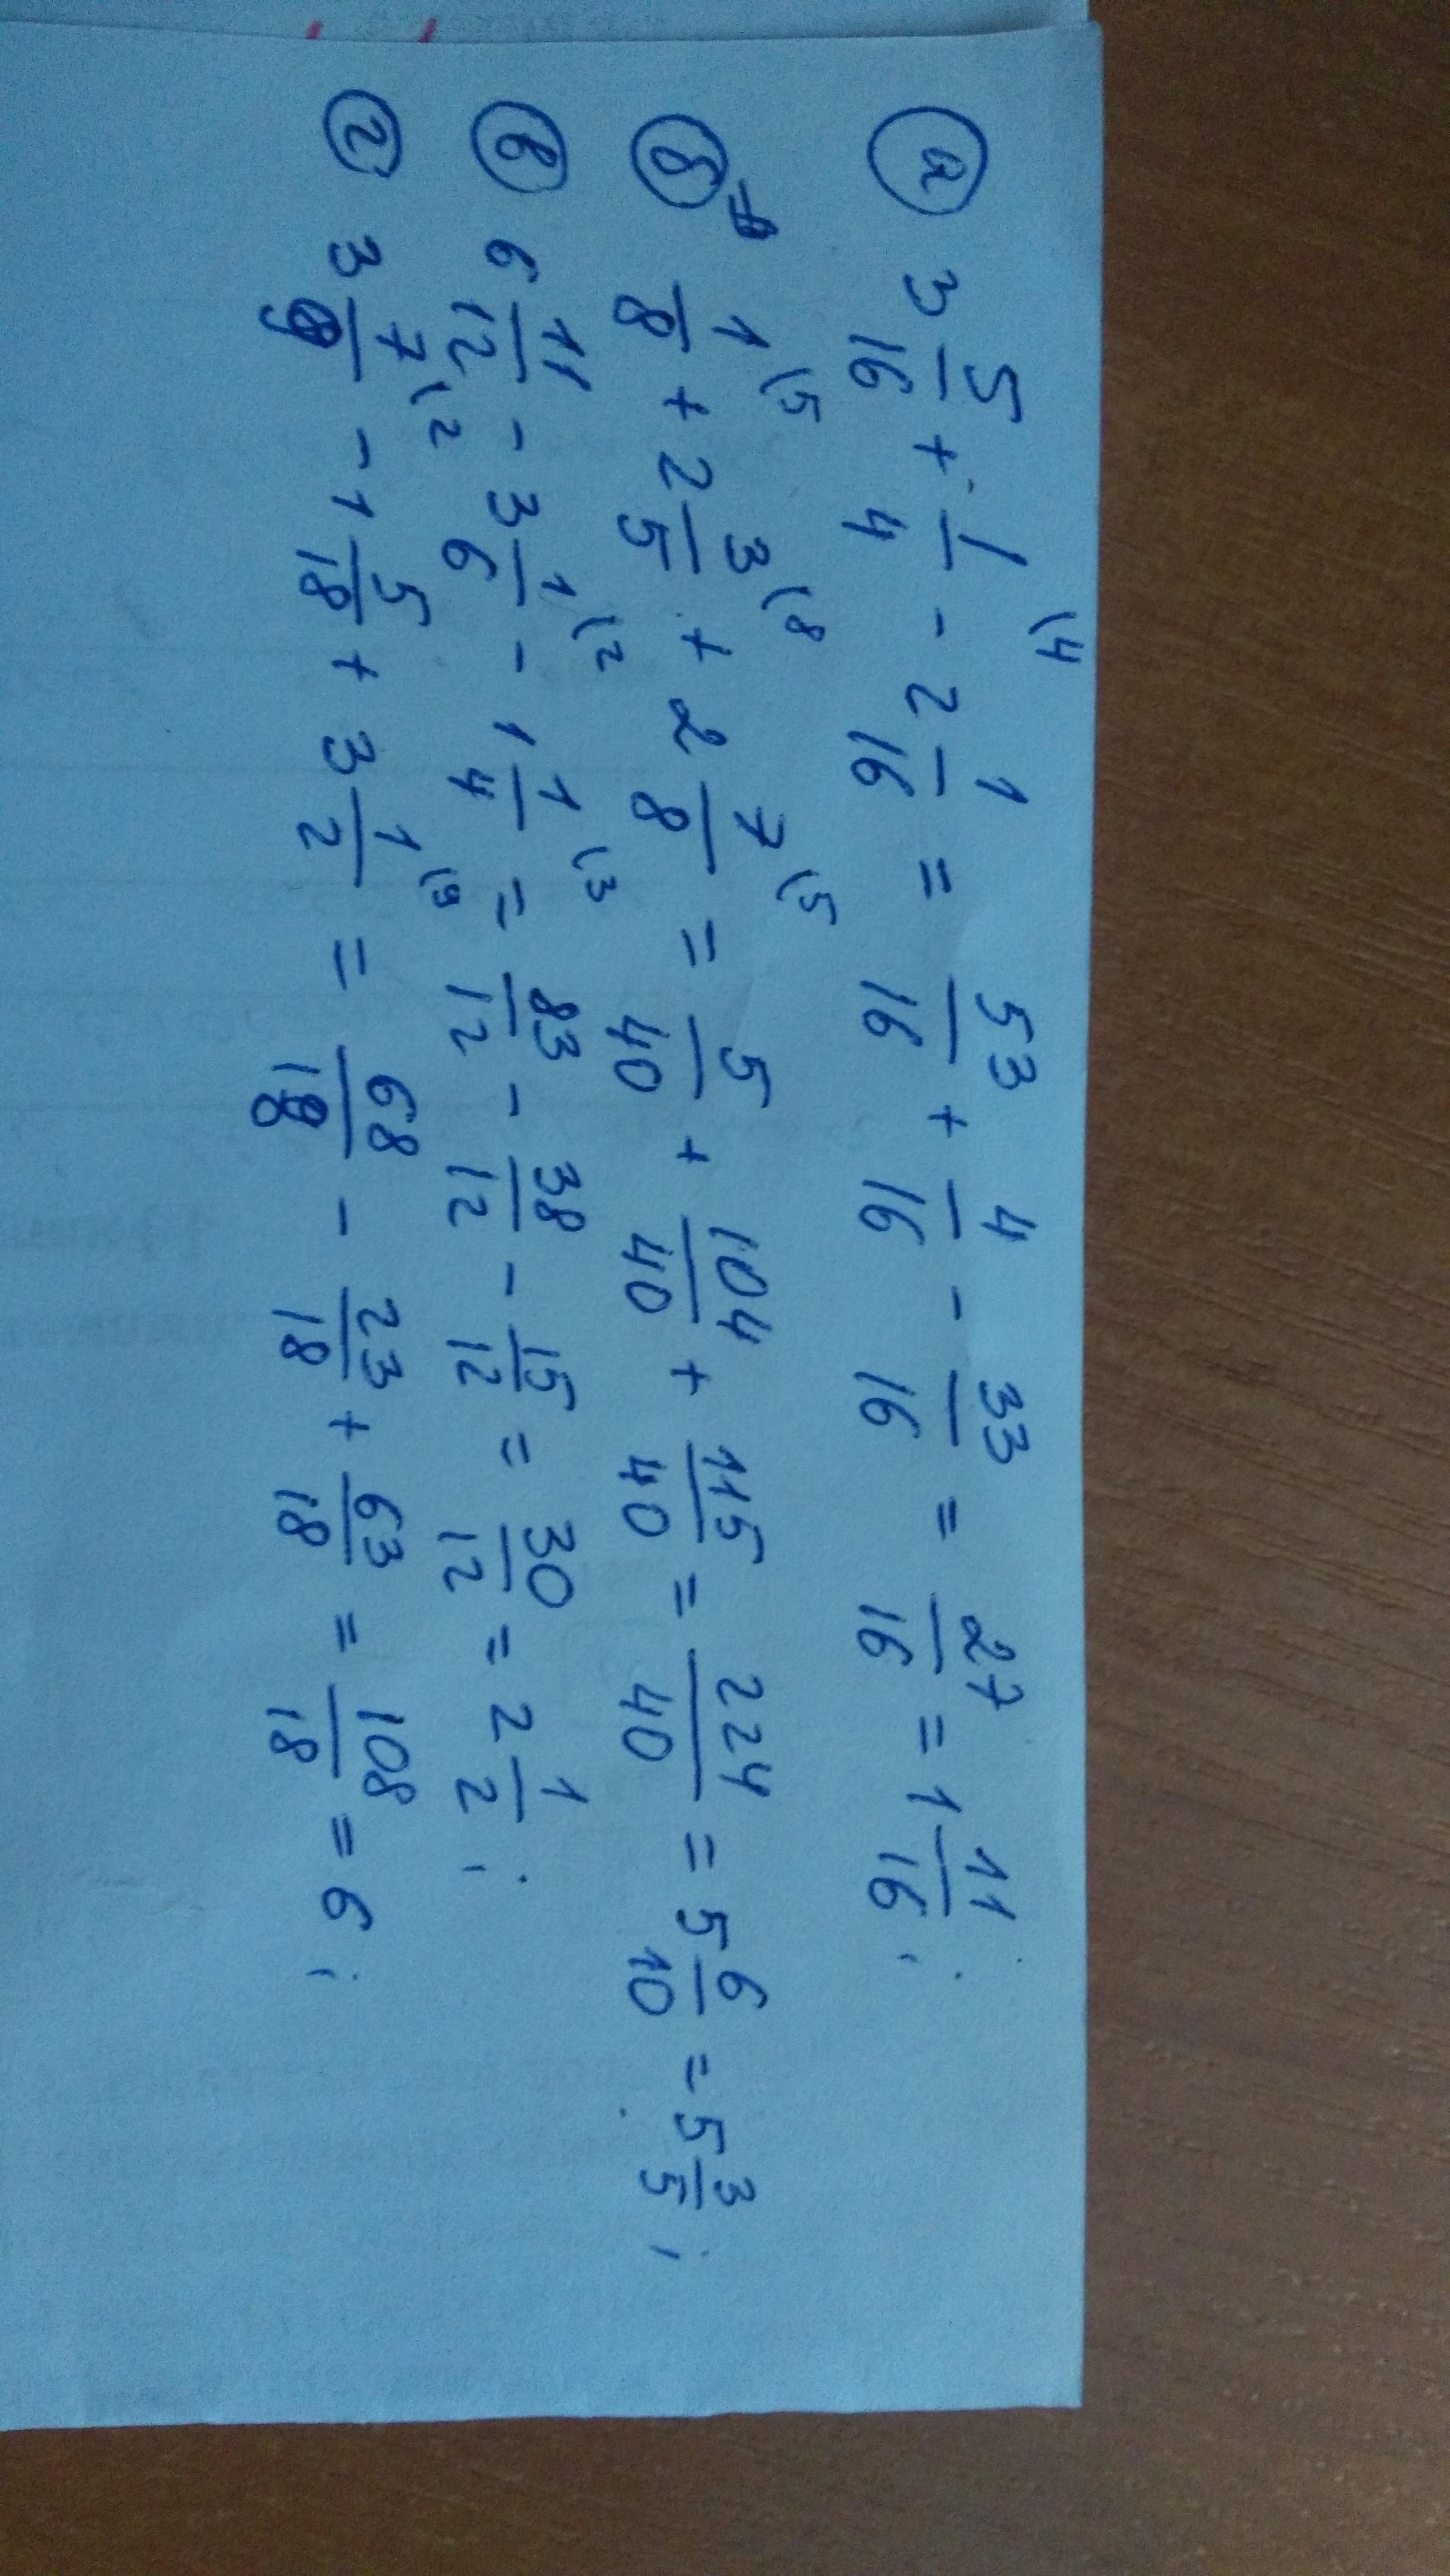 а 3 5/16 + 1/4 \4 - 2 1/16 = 53/16 + 4/16 - 33/16 = 27/16 = 1 11/16;
б 1/8 \5 + 2 3/5 \8 + 2 7/8 \5 = 5/40 + 104/40 + 115/40 = 224/40 = 5 6/10 = 5 3/5;
в 6 11/12 - 3 1/6 \2 - 1 1/4 \3 = 83/12 - 38/12 - 15/12 = 30/12 = 2 1/2;
г 3 7/9 \2 - 1 5/18 + 3 1/2 \9 = 68/18 - 23/18 + 63/18 = 108/18 = 6;